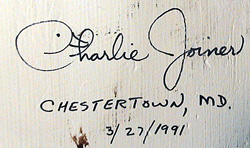 Charlie Joiner
CHESTERTOWN, MD.
3/27/1991